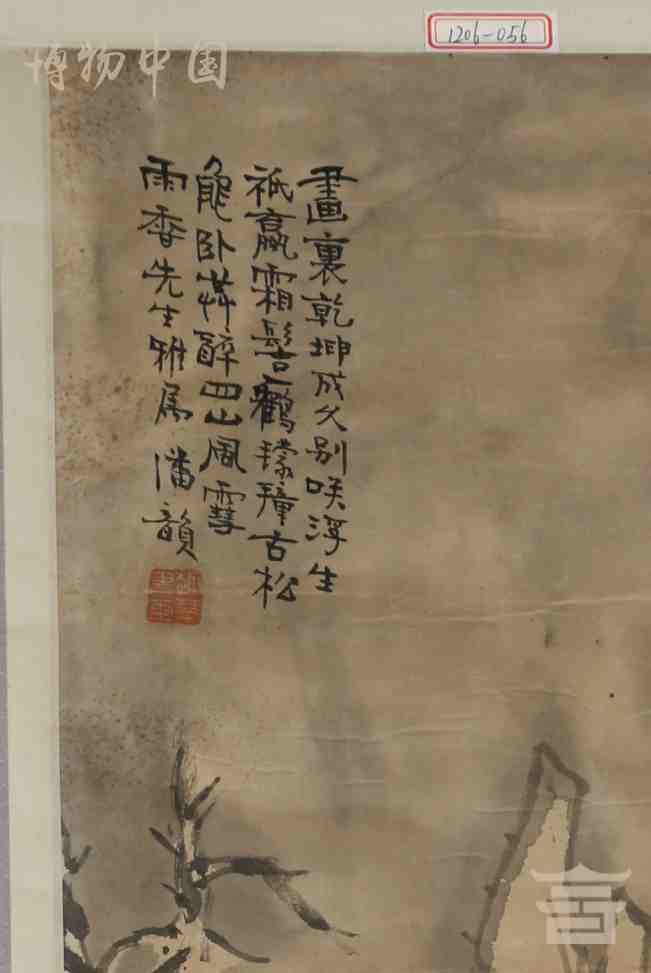 博物中国
1206-056
畫裏乾坤成久別咲浮生
祇贏霜髩鶴古松
龍卧醉四山風雪
雨香先生雅属 潘韻